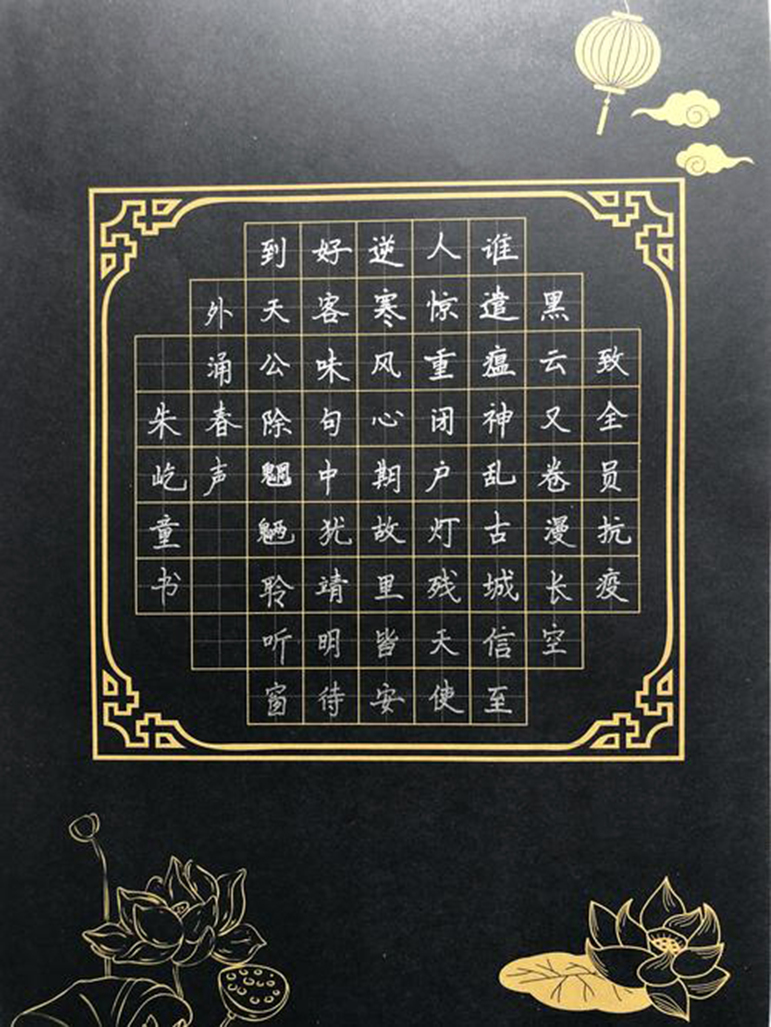 致全员抗疫
黑云又卷漫长空
谁遣瘟神乱古城信至
人惊重闭户灯残天使
逆寒风心期故里皆安
好客味句中犹靖明待
到天公除魍魉聆听窗
外涌春声
朱屹童书